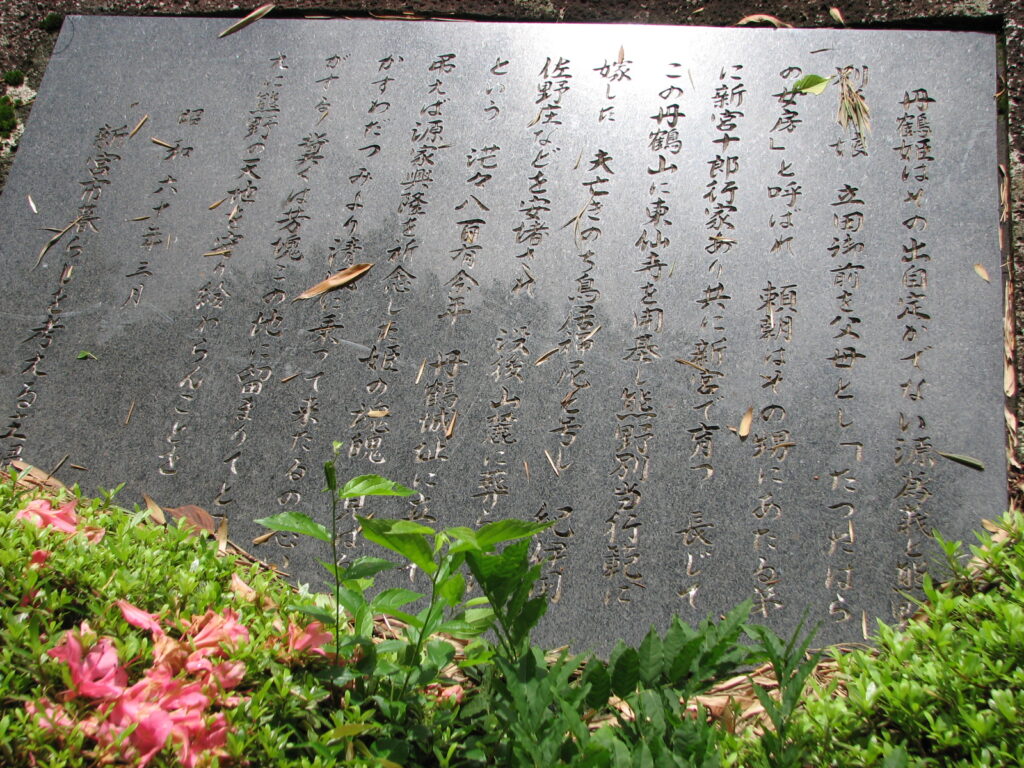 丹鶴姫はその出自定かでない源為義と熊野
別当の娘 立田御前を父母とし「たつたはら
の女房」と呼ばれ 頼朝はその甥にあたる 弟
に新宮十郎行家あり共に新宮で育つ 長じて
この丹鶴山に東仙寺を開基し熊野別当行範に
嫁した 夫亡きのち鳥居禅尼と号し 紀伊
佐野庄などを安堵され 没後山麓に
という 茫々八百有余年 丹鶴城址に
弔えば源家興隆を祈念した姫の魂魄
かすわたつみより 乗って来たるの
がする 冀くは芳魂この地に留まりて
に熊野の天地を守り給わらんことを
昭和六十年三月
新宮市暮らしを考える